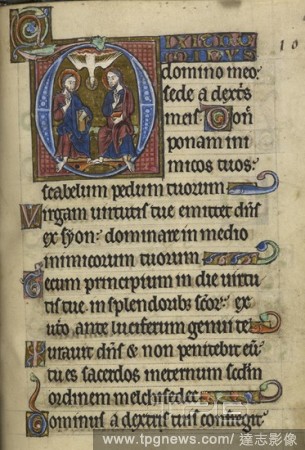 Dixit dns
dns
domino meo:
sede a dextris
meis. Don
ponam ini
micos tuos:
scabelum pedum tuorum
Virgam virtutis tue emittet dns
ex syon: dominare in medio
inimicorum tuorum
Tecum principium in die virtu
tis tue. in splendoribz scor: ex
uto ante luciferum genui te
Iuravit dns & non penitebit eu:
tu es sacerdos ineternum scdin
ordinem melchisedec
Dominus a dextris tuis confregit
www.tpgnews.com / 達志影像